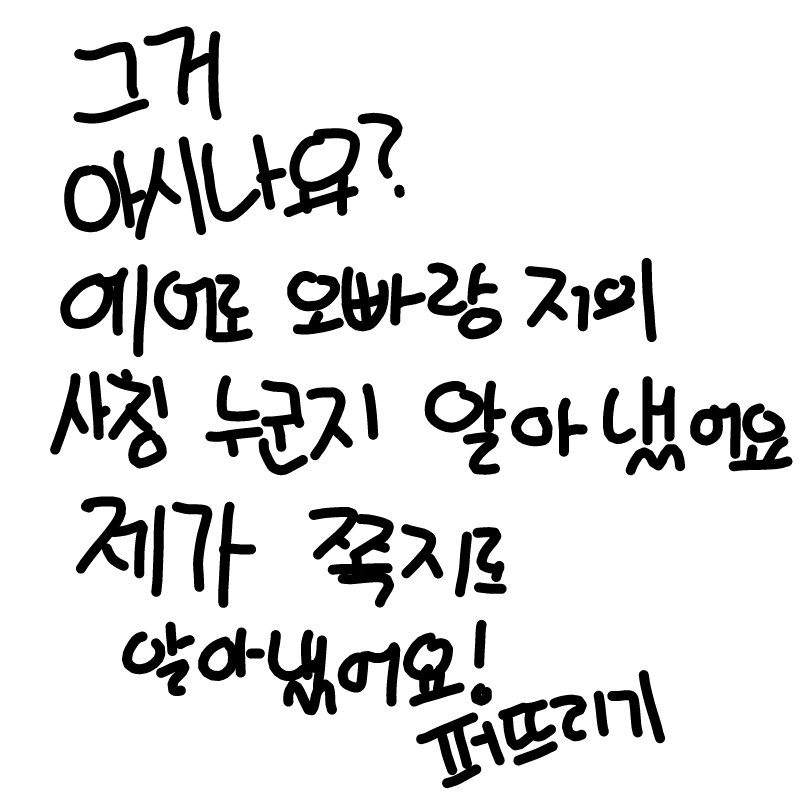 그거
아시나요?
에어로 오빠랑 저의
사칭 누군지 알아 냈어요
제가 쪽지로
알아냈어요!
퍼뜨리기